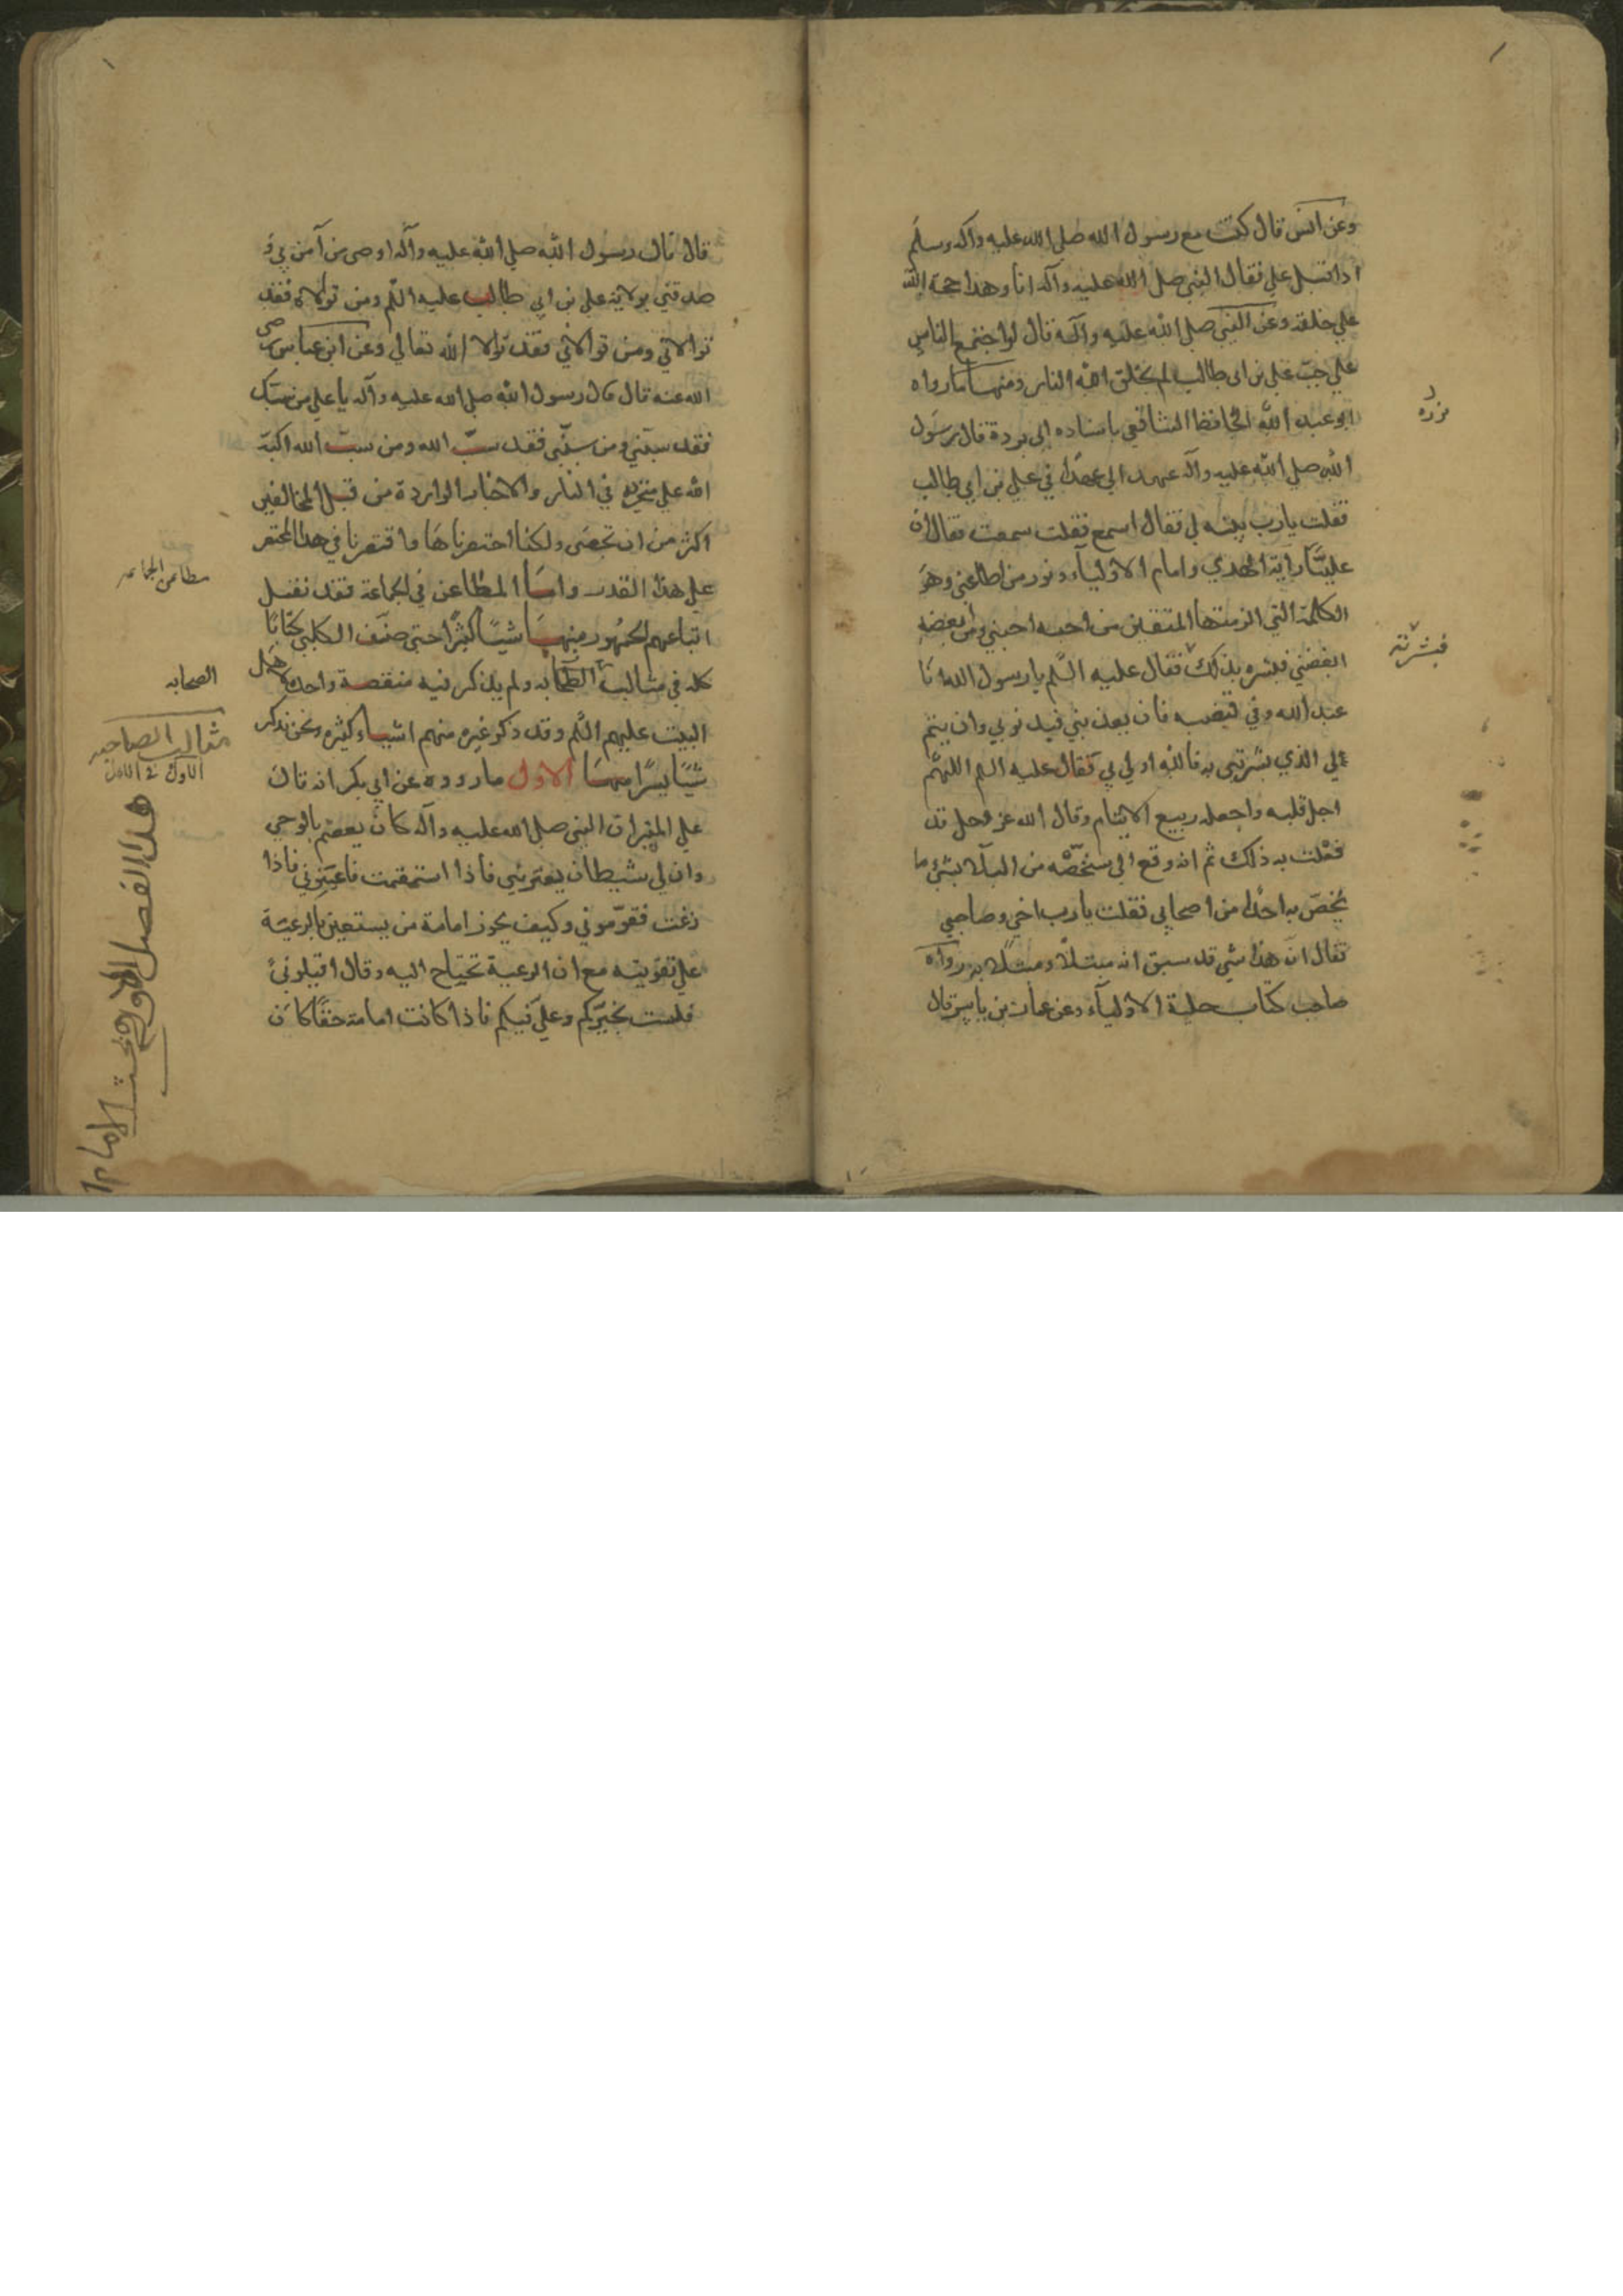 وعن انس قال كنت مع رسول الله صلى الله عليه وآله وسلم
اذا قبل علي فقال النبي صلى الله عليه وآله انا وهذا حجة الله
علي خلقه وعن النبي صلى الله عليه وآله قال لو اجتمع الناس
علي حب علي بن ابي طالب لم يخلق الله النار ومنها ما رواه
ابو عبد الله الحافظ الشافعي باسناده الى بردة قال رسول
الله صلي الله عليه وآله عهد الي عهدا في علي بن ابي طالب
فقلت يا رب بينه لي فقال اسمع فقلت سمعت فقال ان
عليا راية الهدي وامام الاولياء ونور من اطاعني وهو
الكلمة التي الزمتها المتقين من احبه احبني ومن ابغضه
ابغضني فبشره بذلك فقال عليه السلم يا رسول الله انا
عبد الله وفي قبضته فان يعذبني فبذنوبي وان يتم
لي الذي بشرتني به فالله اولي بي فقال عليه السلم اللهم
اجل قلبه واجعله ربيع الايمان وقال الله عز وجل قد
فعلت به ذلك ثم انه وقع الي سنخصه من البلاء بشئ ما
يخص به احدا من اصحابي فقلت يا رب اخي وصاحبي
فقال ان هذا شي قد سبق انه مبتلا ومبتلا به رواه
صاحب كتاب حلية الاولياء وعن عمار بن ياسر قال
فبشرته
قال قال رسول الله صلي الله عليه وآله اوصي من آمن بي و
صدقني بولاية علي بن ابي طالب عليه السلم ومن تولاه فقد
تولاني ومن تولاني فقد تولا الله تعالي وعن ابن عباس رضي
الله عنه قال قال رسول الله صلى الله عليه وآله يا علي من سبك
فقد سبني ومن سبني فقد سب الله ومن سب الله اكبه
الله علي منخريه في النار والاخبار الواردة من قبل المخالفين
اكثر من ان تحصى ولكنا اختصرناها واقتصرنا في هذا المختصر
علي هذا القدر واما المطاعن في الجماعة فقد نقل
اتباعهم الجمهور منها شيئا كثيرا حتى صنف الكلبي كتابا
كله في مثالب الصحابه ولم يذكر فيه منقصة واحدة لاهل
البيت عليهم السلم وقد ذكر غيره منهم اشياء كثيره ونحن نذكر
شيئا يسرا منها الاول ما رووه عن ابي بكر انه قال
علي المنبر ان النبي صلى الله عليه وآله كان يعصم بالوحي
وان لي شيطان يعتريني فاذا استقمت فاعينوني فاذا
زغت فقوموني وكيف يجوز امامة من يستعين بالرعية
علي تقويته مع ان الرعية تحتاج اليه وقال اقيلوني
فلست بخيركم وعلي فيكم فاذا كانت امامته حقا كان
مطاعن الجماعه
الصحابه
مثالب الصاحبه
الاول في الاول
هذا الفصل
الامام